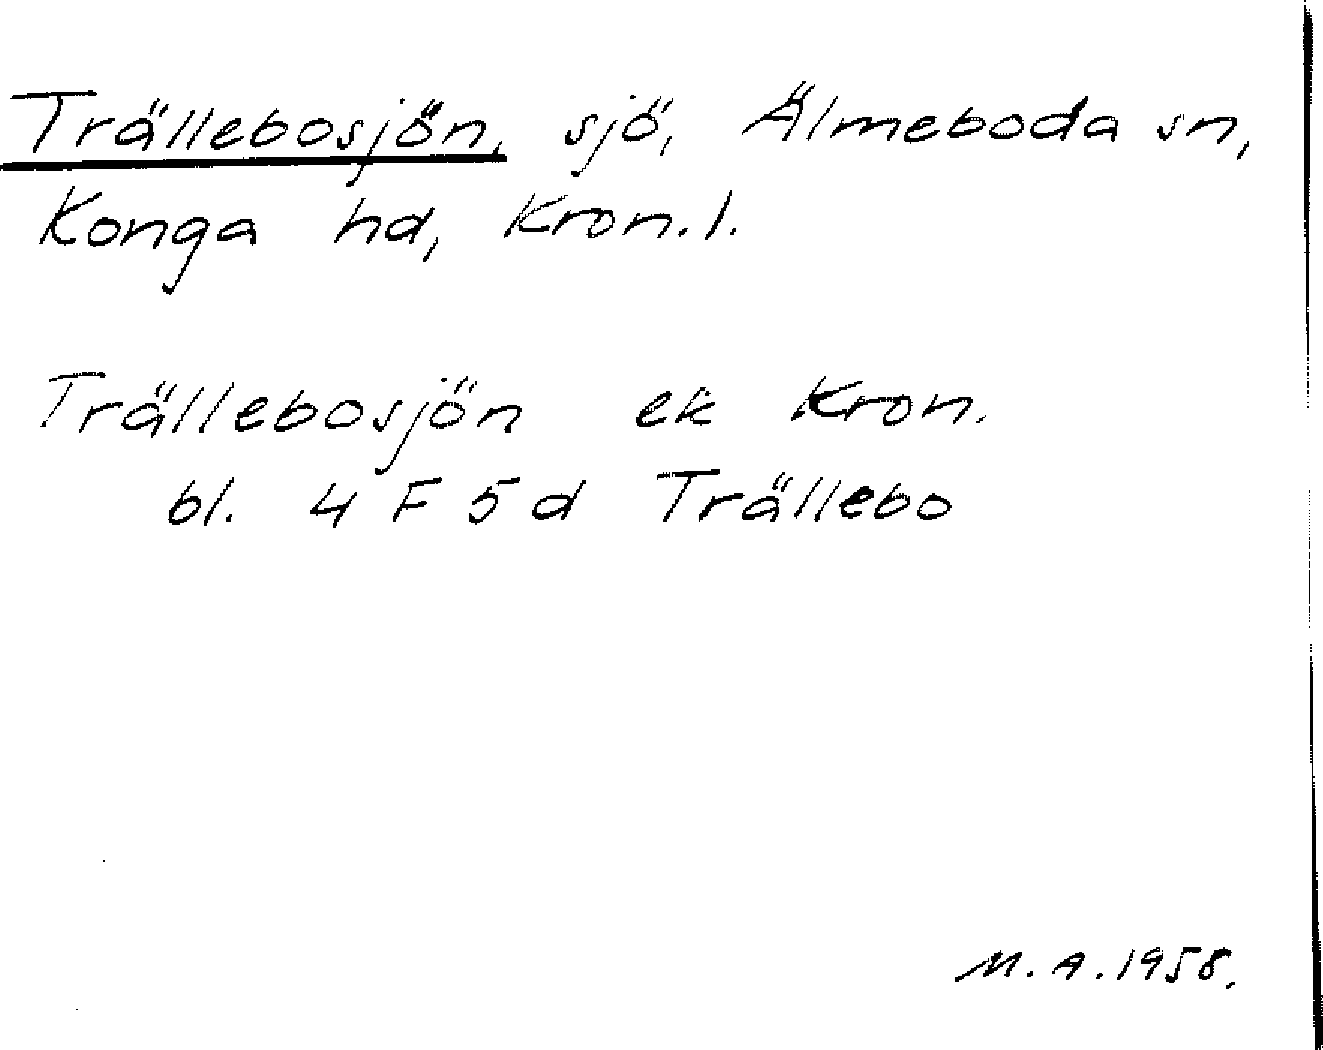 Trällebosjön, sjö, Älmeboda sn,
Konga hd, Kron.l.
Trällebosjön ek Kron.
bl. 4 F 5 d Trällebo
M.A.1958.